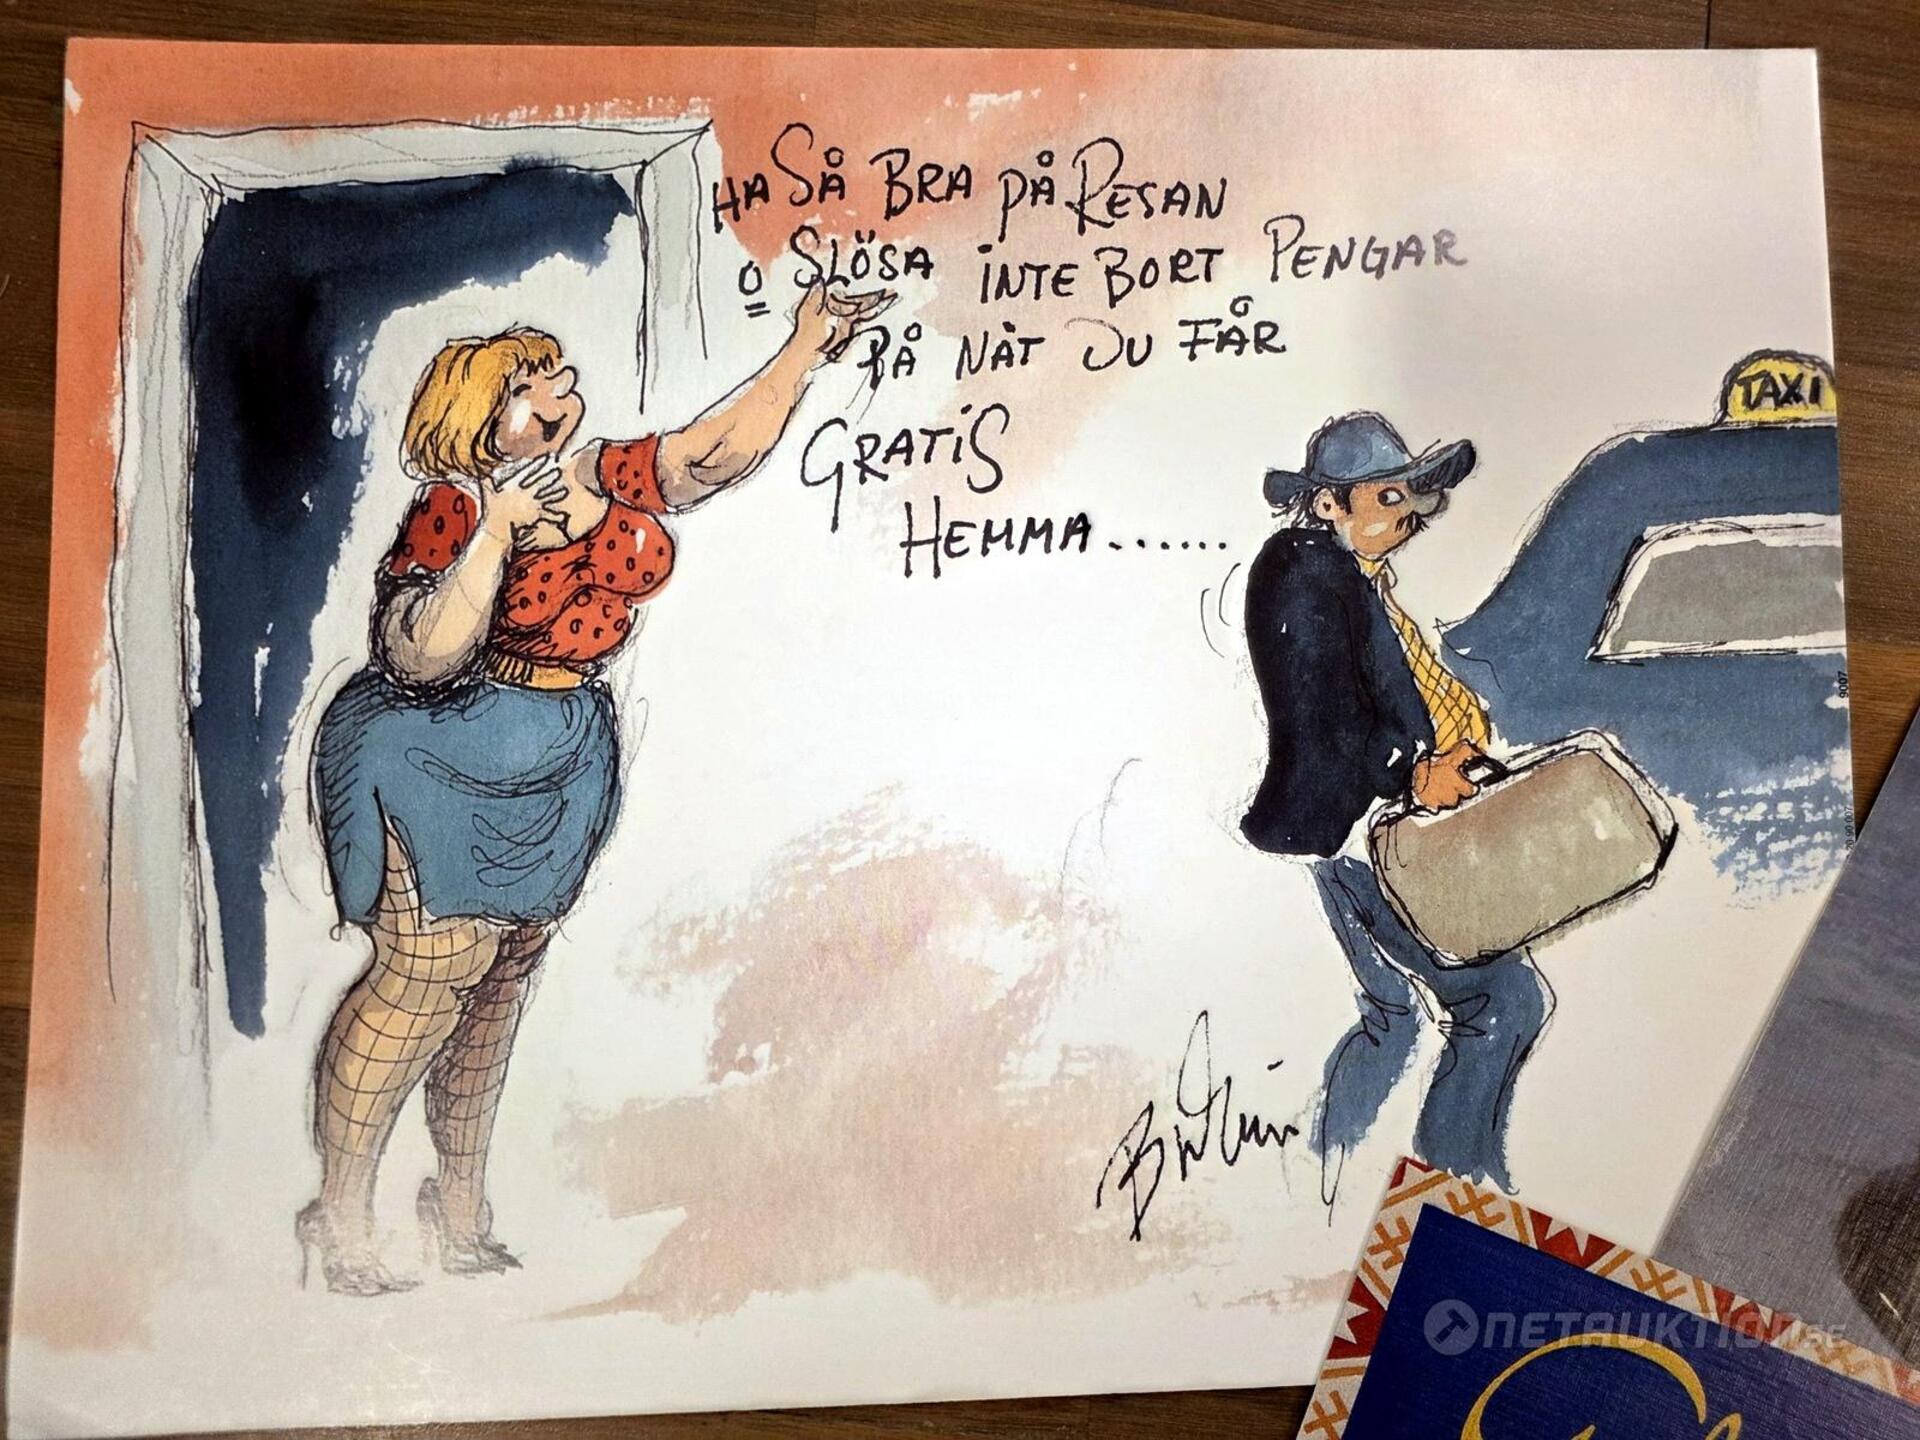 HA SÅ BRA PÅ RESAN
O SLÖSA INTE BORT PENGAR
PÅ NÅT DU FÅR
GRATIS
HEMMA......
TAXI
9007
NETAUKTION.SE